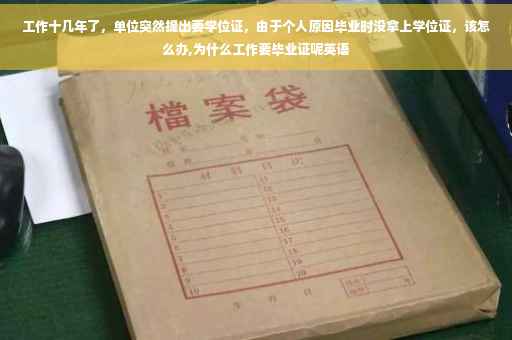 工作十几年了，单位突然提出要学位证，由于个人原因毕业时没拿上学位证，该怎
么办,为什么工作要毕业证呢英语
檔案袋
材料目次
1
2
3
4
5
6
7
8
9
10
11
12
13
14
15
16
17
18
19
20
年 月 日